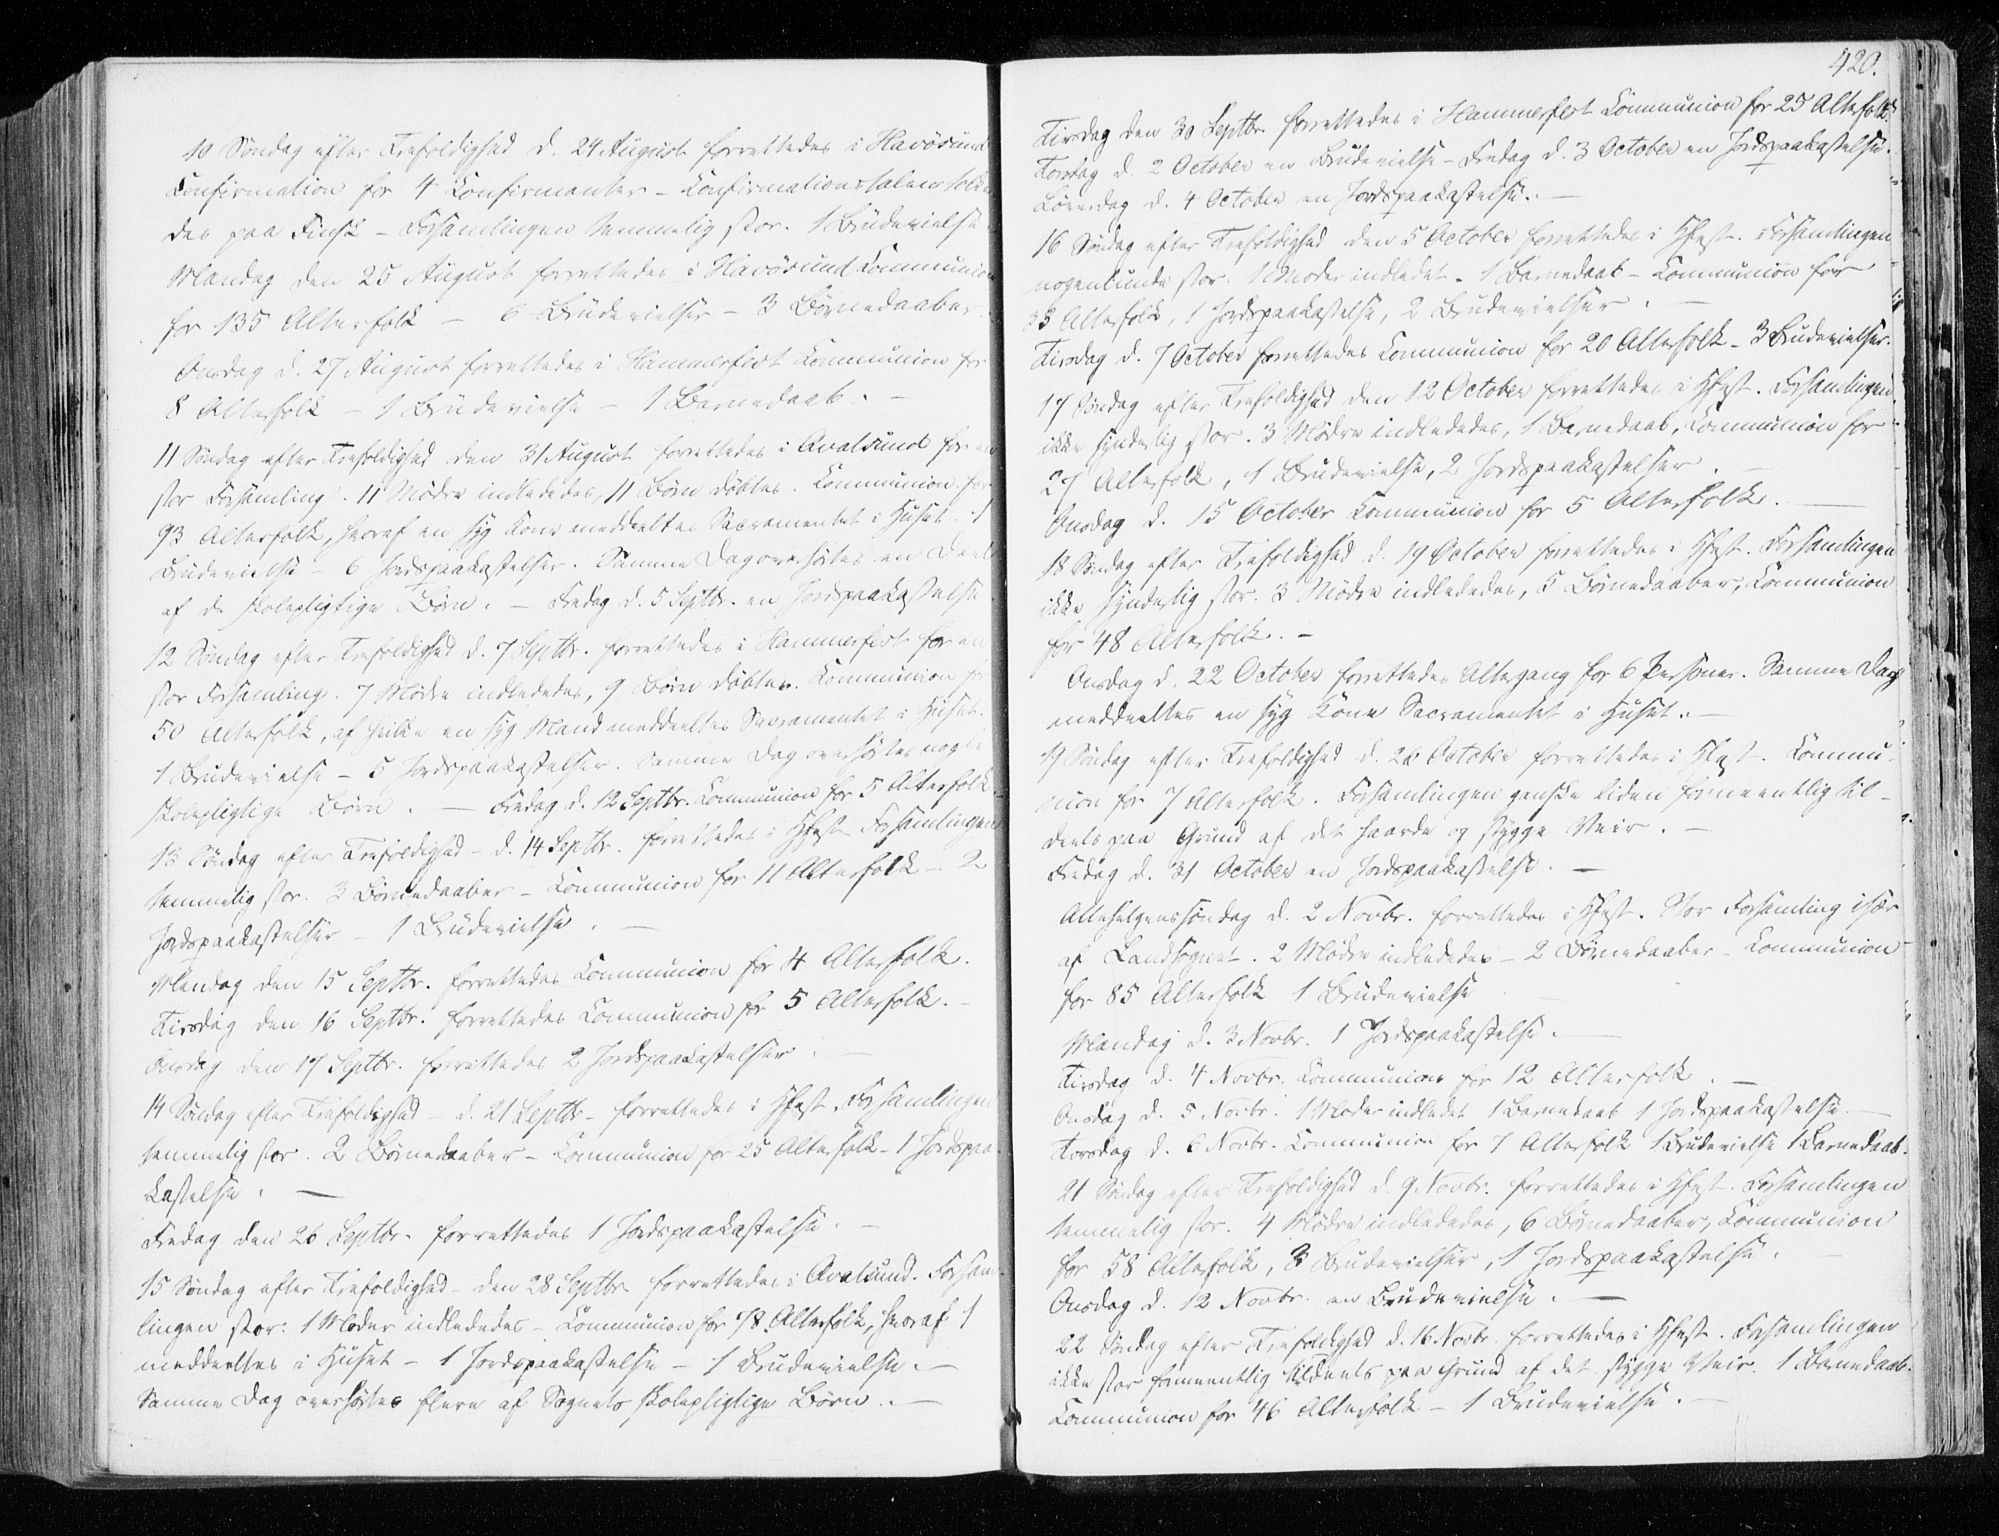 10 Söndag efter Trefoldighed d. 24 August forrettedes i Havösund
Confirmation for 4 Confirmanter – Confirmationstalen tolke-
des paa Finsk – Forsamlingen temmelig stor. 1 Brudevielse.
Mandag den 25 August forrettedes i Havösund Communion
for 135 Alterfolk – 6 Brudevielser – 3 Børnedaaber.
Onsdag d. 27 August forrettedes i Hammerfest Communion for
8 Alterfolk – 1 Brudevielse – 1 Barnedaab. –
11 Söndag efter Trefoldighed den 31 August forrettedes i Qvalsund for en
stor Forsamling. 11 Mødre indlededes, 11 Børn døbtes. Communion for
93 Alterfolk, hvoraf en syg Kone meddeeltes Sacramentet i Huset. 1
Brudevielse – 6 Jordspaakastelser. Samme Dag overhørtes en Deel
af de skolepligtige Børn. – Fredag d. 5 Septbr. en Jordspaakastelse.
12 Söndag efter Trefoldighed d. 7 Septbr. forrettedes i Hammerfest for en
stor Forsamling. 7 Mødre indlededes, 9 Børn døbtes. Communion for
50 Alterfolk, af hvilke en syg Mand meddeeltes Sacramentet i Huset.
1 Brudevielse – 5 Jordspaakastelser. Samme Dag overhørtes nogle
skolepligtige Børn. – Fredag d. 12 Septbr. Communion for 5 Alterfolk.
13 Söndag efter Trefoldighed – d. 14 Septbr. forrettedes i Hfest Forsamlingen
temmelig stor. 3 Børnedaaber – Communion for 11 Alterfolk – 2
Jordspaakastelser – 1 Brudevielse. –
Mandag den 15 Septbr. forrettedes Communion for 4 Alterfolk.
Tirsdag den 16 Septbr. forrettedes Communion for 5 Alterfolk. –
Onsdag den 17 Septbr. forrettedes 2 Jordspaakastelser. –
14 Söndag efter Trefoldighed – d. 21 Septbr – forrettedes i Hfest. Forsamlingen
temmelig stor. 2 Børnedaaber – Communion for 25 Alterfolk – 1 Jordspaa-
kastelse. –
Fredag den 26 Septbr. forrettedes 1 Jordspaakastelse. –
15 Söndag efter Trefoldighed – den 28 Septbr forrettedes i Qvalsund. Forsam-
lingen stor. 1 Moder indlededes – Communion for 78 Alterfolk, hvoraf 1
meddeeltes i Huset – 1 Jordspaakastelse – 1 Brudevielse. –
Samme Dag overhørtes flere af Sognets skolepligtige Børn. –
420.
Tirsdag den 30 Septbr forrettedes i Hammerfest Communion for 25 Alterfolk.
Torsdag d. 2 October en Brudevielse – Fredag d. 3 October en Jordspaakastelse.
Løverdag d. 4 October en Jordspaakastelse. –
16 Søndag efter Trefoldighed den 5 October forrettedes i Hfest. Forsamlingen
nogenlunde stor. 1 Moder indledet – 1 Barnedaab – Communion for
35 Alterfolk, 1 Jordspaakastelse, 2 Brudevielser. –
Tirsdag d. 7 October forrettedes Communion for 20 Alterfolk – 3 Brudevielser.
17 Søndag efter Trefoldighed den 12 October forrettedes i Hfest. Forsamlingen
ikke synderlig stor. 3 Mødre indlededes, 1 Barnedaab, Communion for
27 Alterfolk, 1 Brudevielse, 2 Jordspaakastelser. –
Onsdag d. 15 October Communion for 5 Alterfolk. –
18 Søndag efter Trefoldighed d. 19 October forrettedes i Hfest. Forsamlingen
ikke synderlig stor. 3 Mødre indlededes, 5 Børnedaaber, Communion
for 48 Alterfolk. –
Onsdag d. 22 October forrettedes Altergang for 6 Personer. Samme Dag
meddeeltes en syg Kone Sacramentet i Huset. –
19 Søndag efter Trefoldighed d. 26 October forrettedes i Hfest. Commu-
nion for 7 Alterfolk. Forsamlingen ganske liden formeentlig til-
deels paa Grund af det haarde og stygge Veir. –
Fredag d. 31 October en Jordspaakastelse. –
Allehelgenssøndag d. 2 Novbr. forrettedes i Hfest. Stor Forsamling især
af Landsognet. 2 Mødre indlededes – 2 Børnedaaber – Communion
for 85 Alterfolk 1 Brudevielse
Mandag d. 3 Novbr. 1 Jordspaakastelse. –
Tirsdag d. 4 Novbr. Communion for 12 Alterfolk. –
Onsdag d. 5 Novbr. 1 Moder indledet 1 Barnedaab 1 Jordspaakastelse. –
Torsdag d. 6 Novbr. Communion for 7 Alterfolk 1 Brudevielse 1 Barnedaab.
21 Søndag efter Trefoldighed d. 9 Novbr. forrettedes i Hfest. Forsamlingen
temmelig stor. 4 Mødre indlededes, 6 Børnedaaber, Communion
for 58 Alterfolk, 3 Brudevielser, 1 Jordspaakastelse. –
Onsdag d. 12 Novbr. en Brudevielse. –
22 Søndag efter Trefoldighed d. 16 Novbr. forrettedes i Hfest. Forsamlingen
ikke stor formeentlig tildeels paa Grund af det stygge Veir. 1 Barnedaab.
Communion for 46 Alterfolk – 1 Brudevielse. –